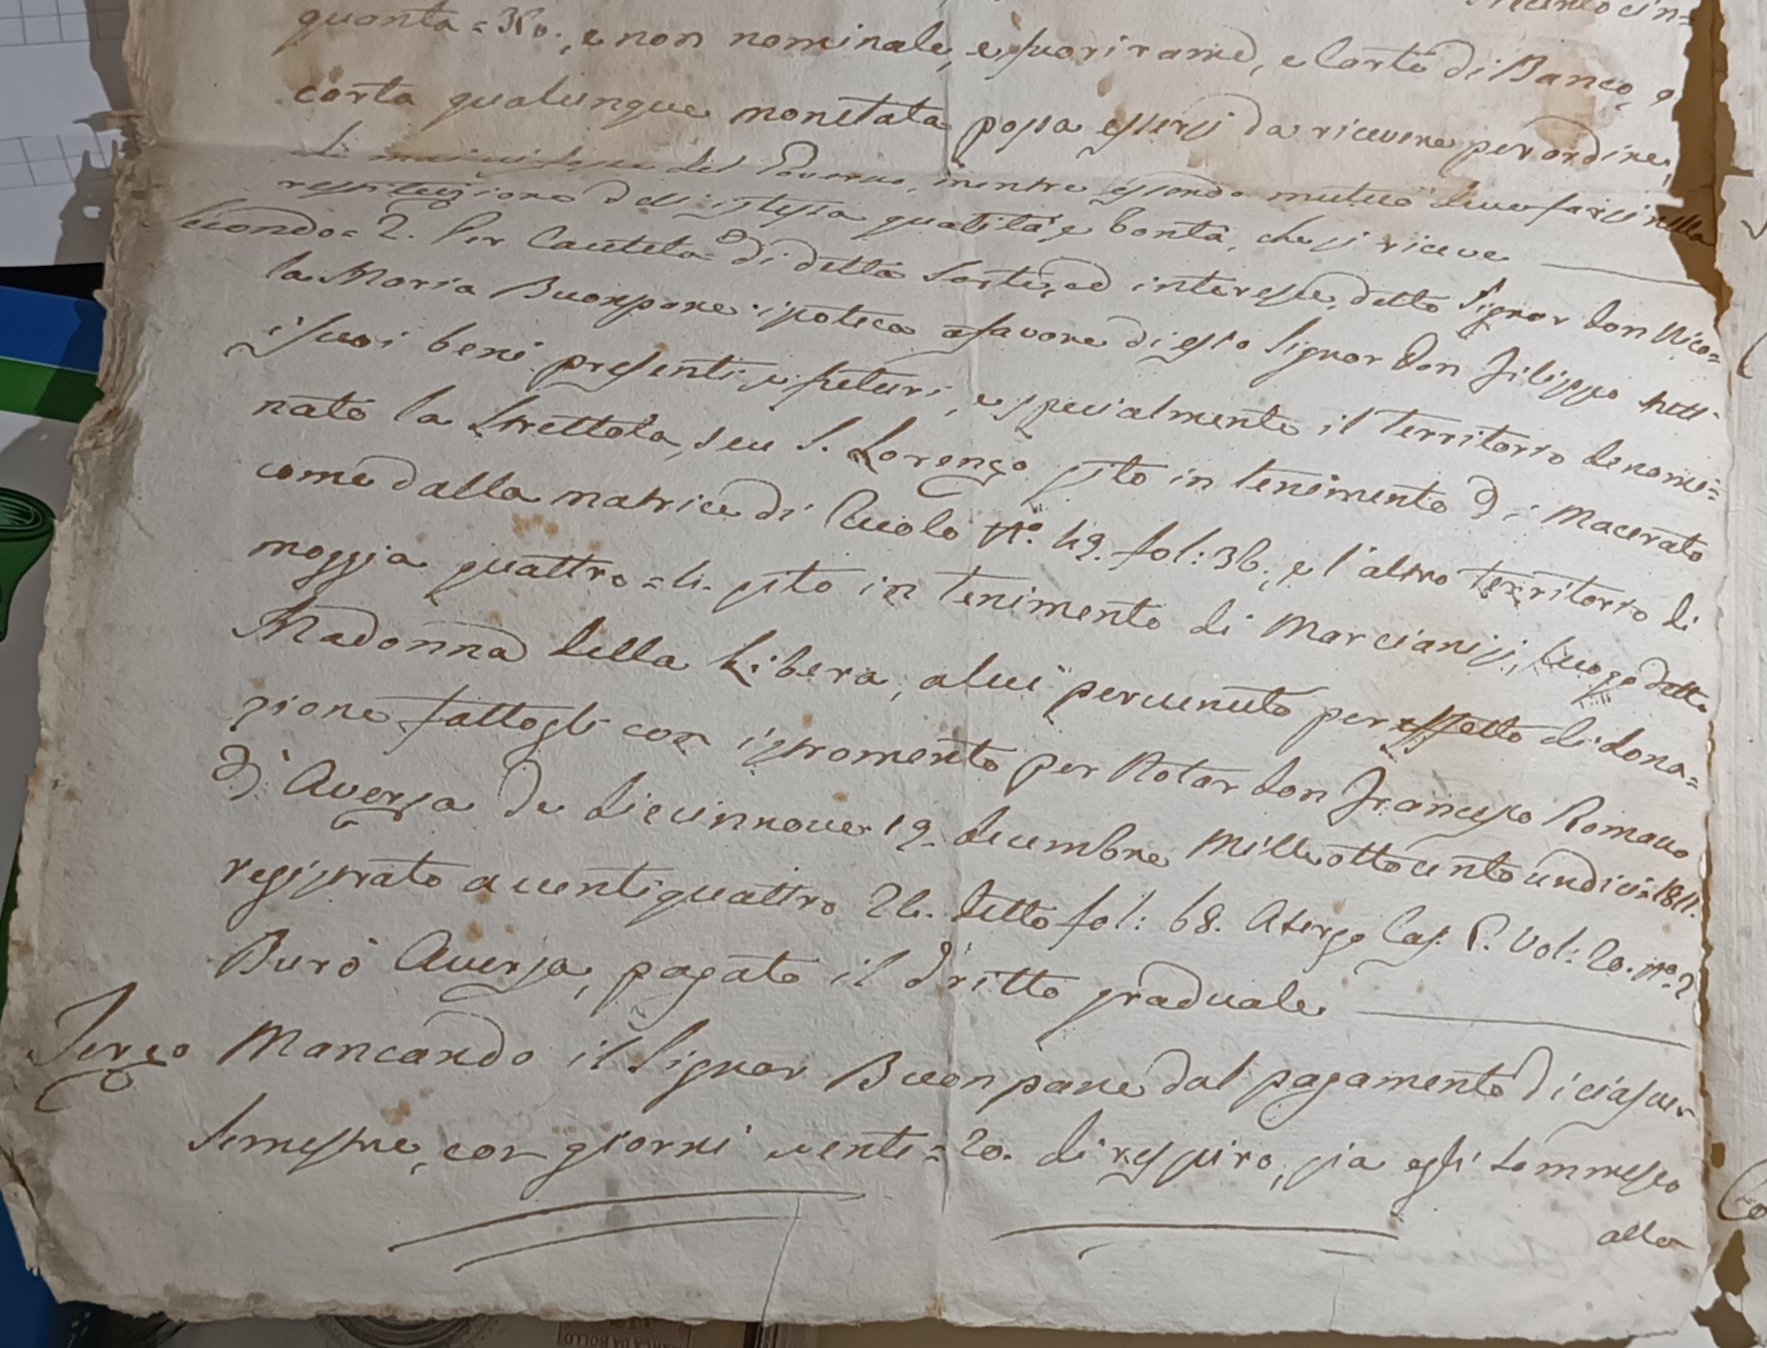 quanta = 350., e non nominale, e fuori rame, e Carte di Banco, o
carta qualunque monetata possa essersi da ricevere per ordine,
del Governo, mentre essendo mutuo deve farsi nella
restituzione dell'istessa qualità, e bontà, che si riceve
Secondo = 2. Per Cautela di detta Sorte, ed interesse, detto Signor Don Nico=
la Maria Buonpane ipoteca a favore di esso Signor Don Filippo tutt'
i suoi beni presenti, e futuri, e specialmente il Territorio denomi=
nato la Strettola, seu S. Lorenzo sito in tenimento di Macerata
come dalla matrice di Ruolo N.° 49. fol: 36., e l'altro territorio di
moggia quattro = 4. sito in tenimento di Marcianisi, luogo detto
Madonna della Libera, a lui pervenuto per effetto di dona=
zione fattagli con istromento per Notar Don Francesco Romano
di Aversa de diecinnove 19. decembre Milleottocentoundici = 1811.
registrato a ventiquattro 24. detto fol: 68. a tergo Cas. P. Vol: 20. N.° 2
Burò Aversa, pagato il dritto graduale
Terzo Mancando il Signor Buonpane dal pagamento di ciascun
Semestre, con giorni venti = 20. di respiro, sia egli sommesso
alla
BOLLO